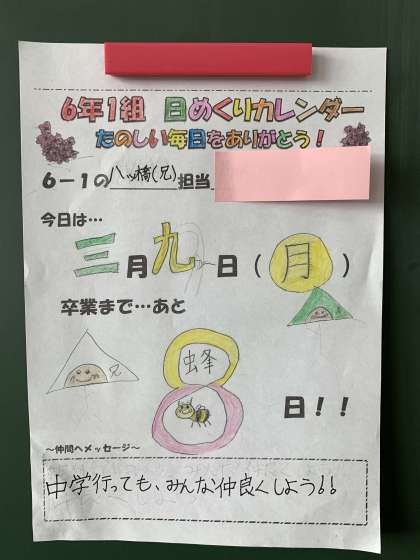 6年1組 日めくりカレンダー
たのしい毎日をありがとう！
6－1の八ッ橋(兄)担当
今日は…
三月九日（月）
卒業まで…あと
蜂
8日！！
兄
～仲間へメッセージ～
中学行っても、みんな仲良くしよう！！